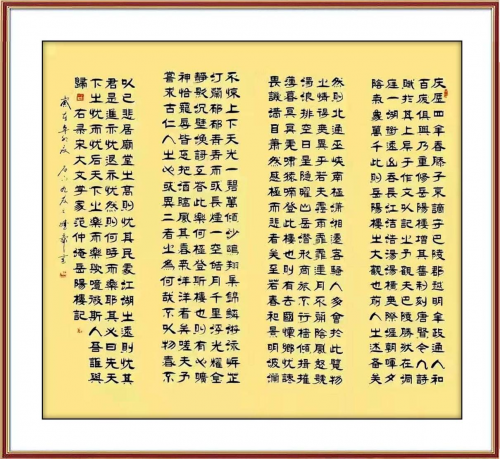 慶曆四年春滕子京謫守巴陵郡越明年政通人和
百廢俱興乃重修岳陽樓增其舊制刻唐賢今人詩
賦於其上屬予作文以記之予觀夫巴陵勝狀在洞
庭一湖銜遠山吞長江浩浩湯湯橫無際涯朝暉夕
陰氣象萬千此則岳陽樓之大觀也前人之述備矣
然則北通巫峽南極瀟湘遷客騷人多會於此覽物
之情得無異乎若夫霪雨霏霏連月不開陰風怒號
濁浪排空日星隱曜山岳潛形商旅不行檣傾楫摧
薄暮冥冥虎嘯猿啼登斯樓也則有去國懷鄉憂讒
畏譏滿目蕭然感極而悲者矣至若春和景明波瀾
不驚上下天光一碧萬頃沙鷗翔集錦鱗游泳岸芷
汀蘭郁郁青青而或長煙一空皓月千里浮光耀金
靜影沉璧漁歌互答此樂何極登斯樓也則有心曠
神怡寵辱皆忘把酒臨風其喜洋洋者矣嗟夫予
嘗求古仁人之心或異二者之為何哉不以物喜不
以己悲居廟堂之高則憂其民處江湖之遠則憂其
君是進亦憂退亦憂然則何時而樂耶其必曰先天
下之憂而憂后天下之樂而樂歟噫微斯人吾誰與
歸 右录宋大文學家范仲淹岳陽樓記
歲在辛卯秋